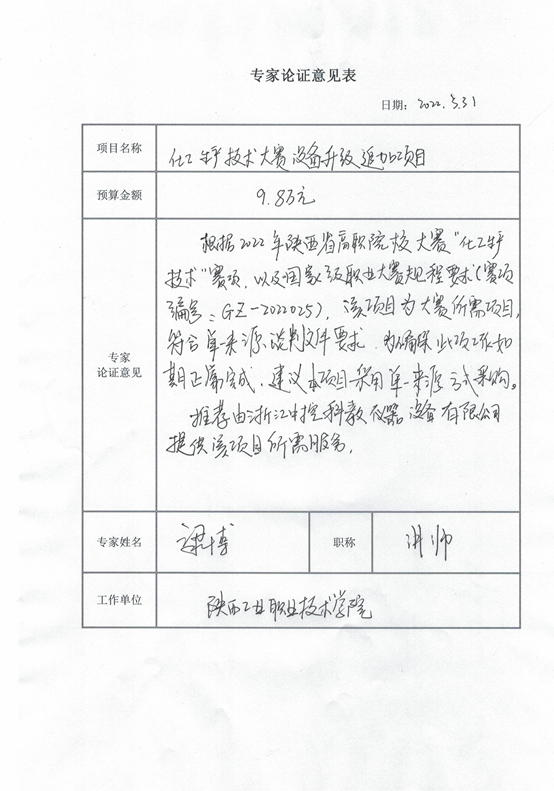 专家论证意见表
日期：2022.3.31
项目名称
化工生产技术大赛设备升级追加项目
预算金额
9.8万元
根据2022年陕西省高职院校大赛“化工生产
技术”赛项，以及国家级职业大赛规程要求（赛项
编号：GZ-2022025），该项目为大赛所需项目，
符合单一来源谈判文件要求，为确保此项工作如
期正常完成，建议本项目采用单一来源方式采购。
推荐由浙江中控科教仪器设备有限公司
提供该项目所需服务。
专家
论证意见
专家姓名
梁博
职称
讲师
工作单位
陕西工业职业技术学院